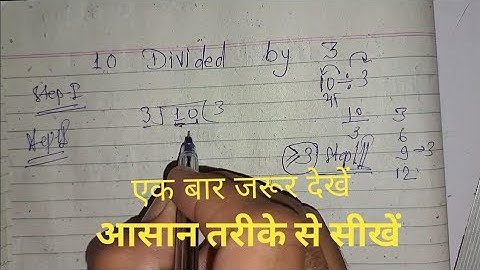 10 Divided by 3
Step I
10 ÷ 3
3 ) 10 ( 3
Step II
10
3
3
6
9 → 3
12
≥3 Step III
एक बार जरूर देखें
आसान तरीके से सीखें